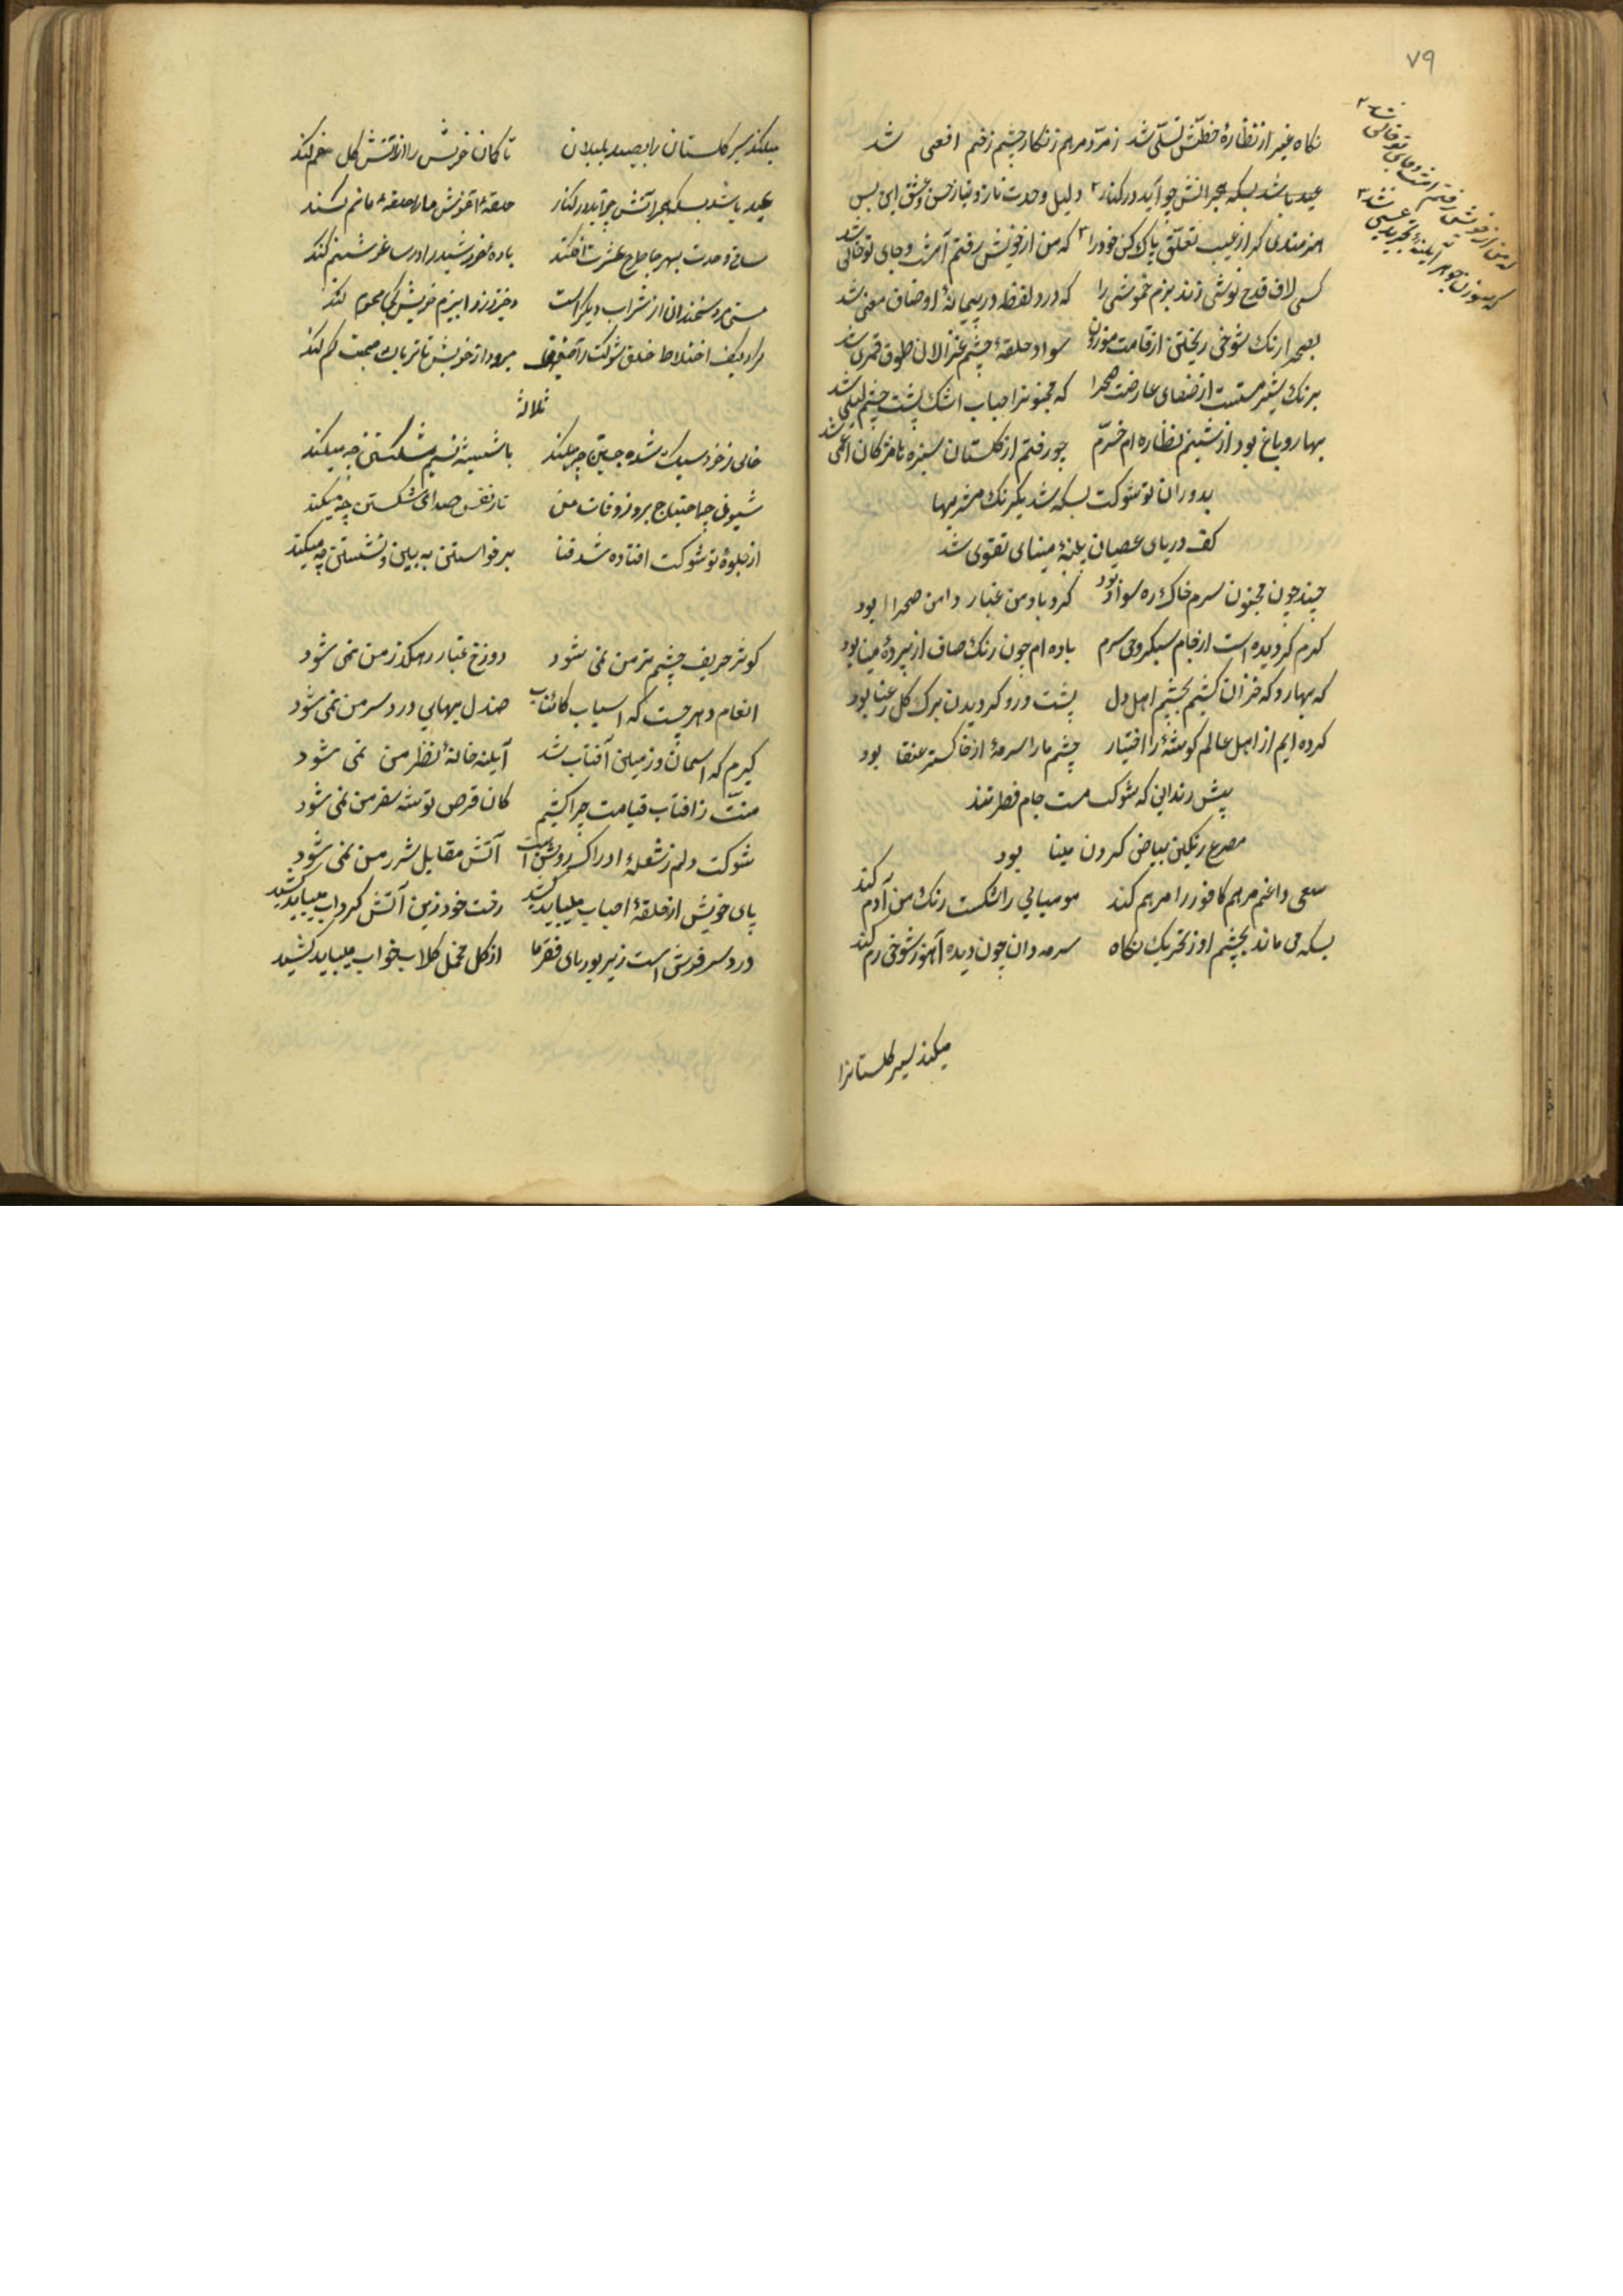 ۷۹
نکاه غیر از نظارهٔ خطش تسلّی شد زمرّد مرهم زنکار چشم زخم افعی شد
عید باشد بسکه هجرانش چو آید در کنار ۲ دلیل وحدت ناز و نیاز حسن و عشق این بس
هنرمندی که از عیب تعلّق پاک کن خود را ۳ که من از خویش رفتم آمدت و جای تو خالی شد
که من از خویش رفتم و جای تو خالی شد ۲
که سوزن جوهر آیینهٔ تجرید عیسی شد ۳
کسی لاف قدح نوشی زند بزم خموشی را که درد لفظ در پیمانهٔ او صاف معنی شد
بصحرا رنک شوخی ریختی از قامت موزون سواد حلقهٔ چشم غزالان طوق قمری شد
برنک شیر مستست از صفای عارضت صحرا که مجنونرا حباب اشک پشت چشم لیلی شد
بهار و باغ بود از شبنم نظاره ام خرّم چو رفتم از کلستان سبزه تا مژکان اعمی شد
بدوران تو شوکت بسکه شد یکرنک مشربها
کف دریای عصیان پنبهٔ مینای تقوی شد
چند چون مجنون سرم خاک ره سودا بود کرد باد من غبار دامن صحرا بود
کرم کردیده است از جام سبکروحی سرم باده ام چون رنک صاف از پردهٔ مینا بود
که بهار و که خزان کشتم بچشم اهل دل پشت و رو کردیدن برک کل رعنا بود
کرده ایم از اهل عالم کوشهٔ را اختیار چشم ما را سرمهٔ از خاکستر عنقا بود
پیش رندانی که شوکت مست جام فطرتند
مصرع رنکین بیاض کردن مینا بود
سعی داغم مرهم کافور را مرهم کند مومیایی را شکست رنک من آدم کند
بسکه می ماند بچشم او ز تحریک نکاه سرمه دان چون دیده آهو ز شوخی رم کند
میکند سیر کلستانرا
میکند سیر کلستان را بصید بلبلان تا کمان خویش را از آتش کل خم کند
عید باشد بسکه هجرانش چو آید در کنار حلقهٔ آغوش ما را حلقهٔ ماتم کند
ساقی وحدت بهر جا طرح عشرت افکند باده خورشید را در ساغر شبنم کند
مستی مرد سخندان از شراب دیکر است دختر رز را ببزم خویش کی محرم کند
مراد بکف اختلاط خلق شوکت را میرود از خویش تا تریاک صحبت کم کند
ثلاثه
خالی ز خود سبک شده جستن چه میکند با شیشه نسیم شکستن چه میکند
شیون چه احتیاج بروز وفات من تار نفس صدای شکستن چه میکند
از جلوهٔ تو شوکت افتاده شد فنا برخواستن به بین و نشستن چه میکند
کوثر حریف چشم تر من نمی شود دوزخ غبار رهکذر من نمی شود
انعام دهر چیست که اسباب کائنات صندل بهایی درد سر من نمی شود
کیرم که آسمان و زمین آفتاب شد آیینه خانهٔ نظر من نمی شود
منّت ز افتاب قیامت چرا کشم کان قرص توشه سفر من نمی شود
شوکت دلم ز شعلهٔ ادراک روشن است آتش مقابل شرر من نمی شود
پای خویش از حلقهٔ احباب میباید کشید رخت خود زین آتش کرداب میباید کشید
درد سر فرشی است زیر بوریای فقر ما از کل مخمل کلاب خواب میباید کشید